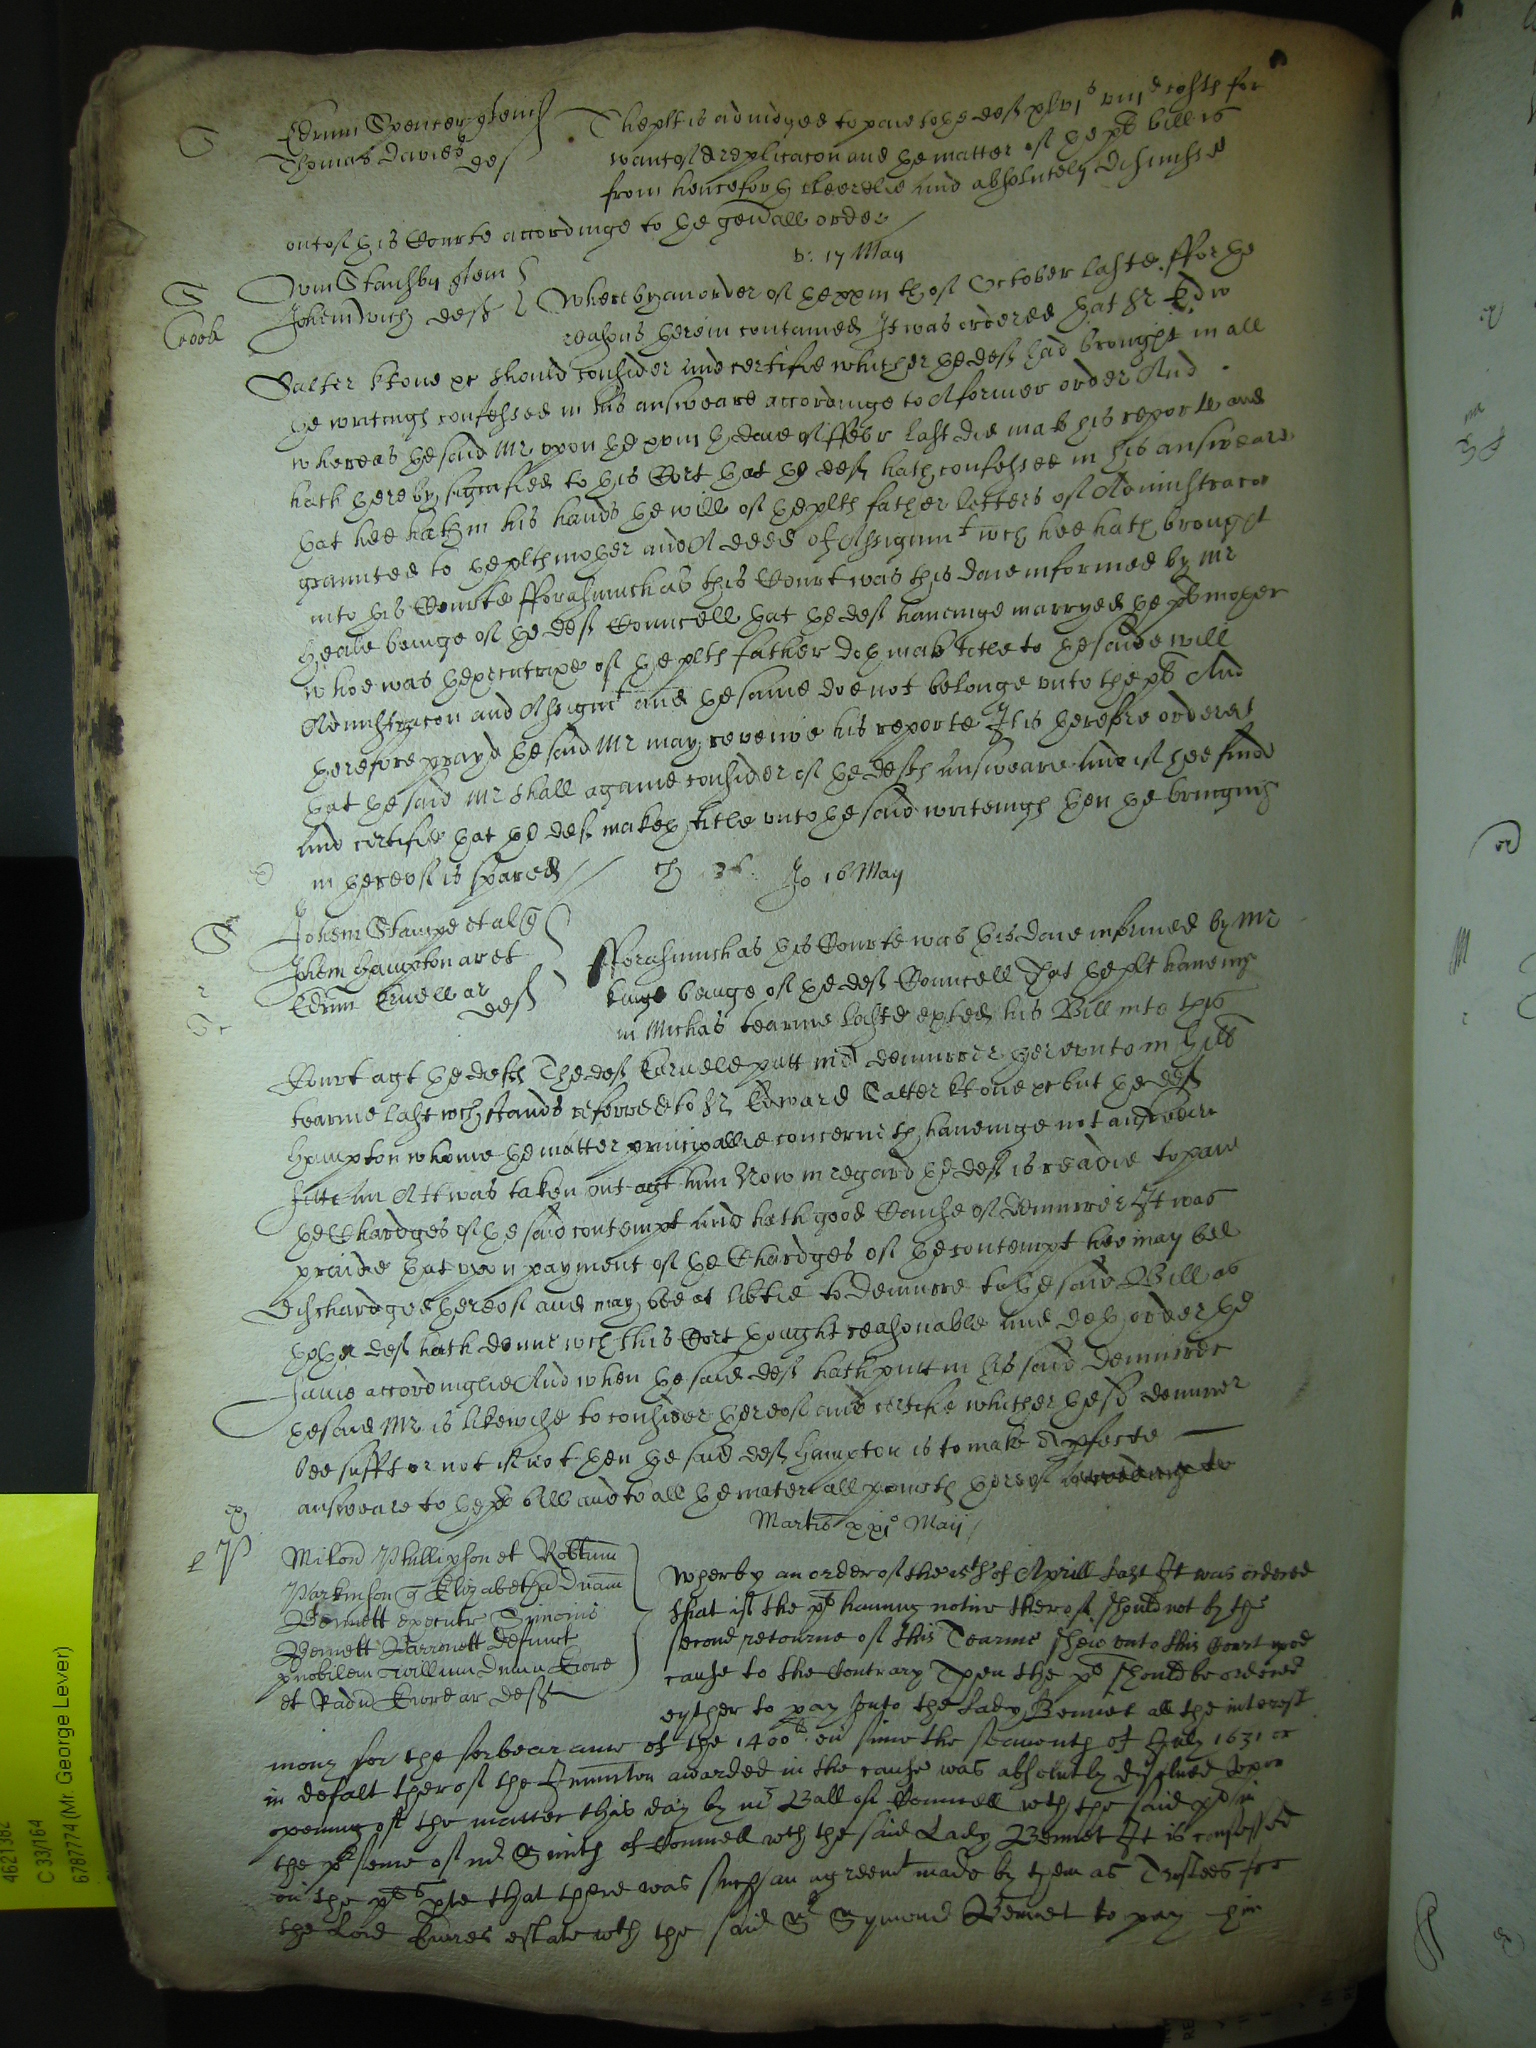 S
Edrum Spencer quem
Thomas Davies def
The plt is adiudged to paie to the deft xlvjs viijd costs for
want of a replicacon and the matter of the pts bill is
from henceforth cleerelie and absolutely dismissed
out of this Courte accordinge to the gen'all order
v: 17 May
S
Crook
Stansby quem
Johem deft
Where by an order of the xxiijth of October laste ffor the
reasons therein contained It was ordered that Sr Edw
Salter kt one &c should consider and certifie whither the deft had brought in all
the writings confessed in his answeare accordinge to A former order And
whereas the said Mr vpon the xviijth daie of ffebr last did make his reporte and
hath thereby signified to this Cort that the deft hath confessed in his answeare
that hee hath in his hands the will of the plts father letters of Administracon
graunted to the plts mother and A deed of Assignmt wch hee hath brought
into this Courte fforasmuch as this Court was this daie informed by Mr
Heale beinge of the defts Councell that the deft haueinge marryed the pts mother
whoe was thexecutrixe of the plts father doth make title to the saide will
Administracon and Assignmt and the same doe not belonge vnto the pts And
therefore prayd the said Mr may reveiwe his reporte It is therefore ordered
that the said Mr shall againe consider of the defts answeare and if hee finde
and certifie that the deft maketh title vnto the said writeings then the bringing
in thereof is spared
Jo 16 May
S
Johem Stampe et al q
Johem Hampton ar et
Edrum Kruell ar
deft
fforasmuch as this Courte was this daie informed by Mr
Kinge beinge of the defts Councell That the plt haueing
in Michas tearme laste exhted his Bill into this
Court agt the defts The deft Keruele putt in A demurrer therevnto in Hill
tearme last wch stands referred to Sr Edward Salter kt one &c but the deft
Hampton whome the matter principallie concerneth haueinge not answeare
filed An Att was taken out agt him Now in regard the deft is readie to paie
the Chardges of the said contempt and hath good Cause of demurrer It was
praide that vpon payment of the Chardges of the contempt hee may bee
dischardged thereof and may bee at libtie to demurre to the said Bill as
thother deft hath donne wch this Cort thought reasonable and doth order the
same accordinglie And when the said deft hath putt in his said demurrer
the said Mr is likewise to consider thereof and certifie whither the sd demurrer
bee sufft or not if not then the said deft Hampton is to make A pfecte
answeare to the pts bill and to all the materiall pointes thereof
Martis xxjo Maij
P
Milon Phillipson et Robtum
Parkinson q Elizabetha Dnam
Bennett executr Simonis
Bennett Barronett defunct
pnobilem Willimu Dnum
et Radu ar defts
Wherby an order of the 15th of Aprill last It was ordered
that if the pts hauing notice therof should not by the
second retourne of this Tearme shew vnto this Court good
cause to the contrary Then the pts should be ordered
eyther to pay vnto the Lady Bennet all the interest
mony for the forbearance of the 1400l eu' since the seauenth of July 1631 or
in defalt therof the Iniuncton awarded in the cause was absolutly dissolued Vpon
opening of the matter this day by mr Ball of Councell wth the said pts in
the psence of mr Smith of Councell wth the said Lady Bennet It is confessed
on the pts pte that there was such an agreemt made by them as Trustees for
the Lord estate wth the said Sr Symond Bennet to pay him
4621382
C 33/164
6787774 (Mr. George Lever)